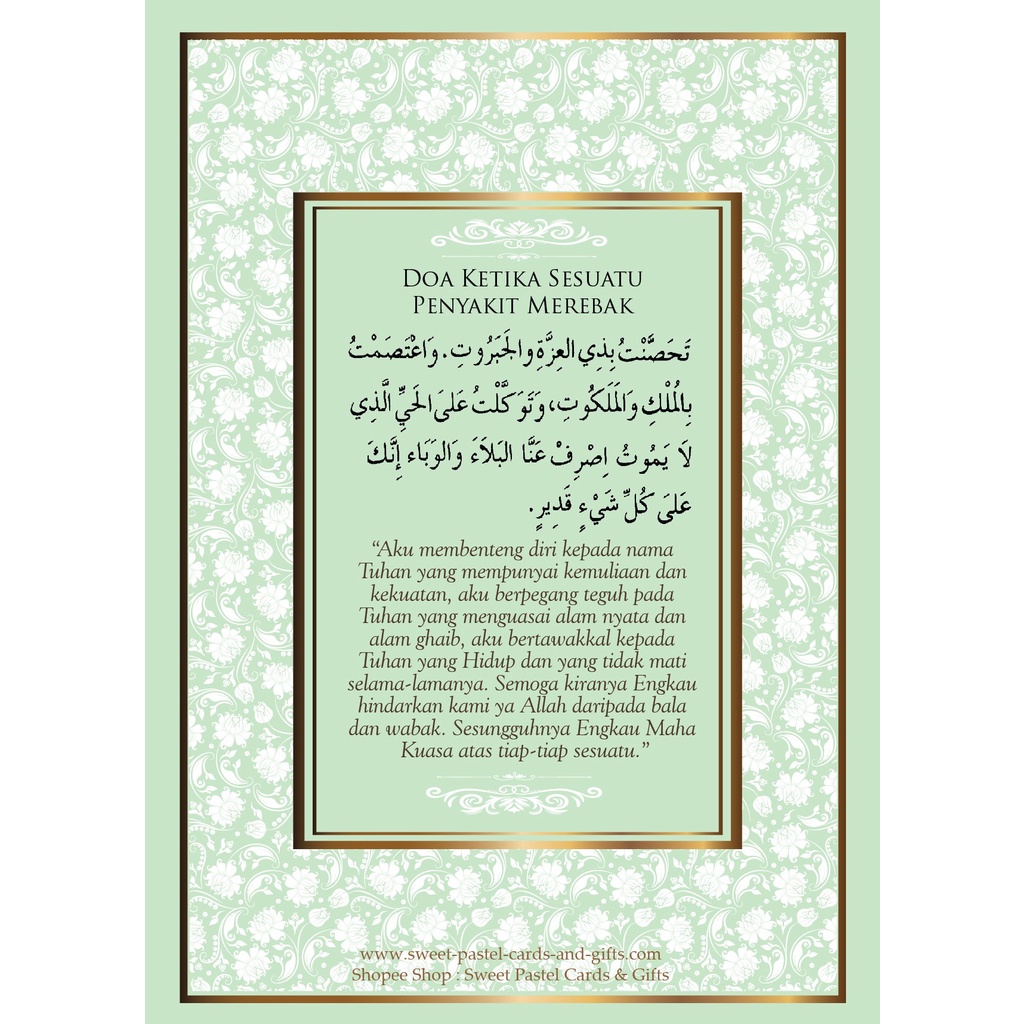 Doa Ketika Sesuatu
Penyakit Merebak
تَحَصَّنْتُ بِذِي العِزَّةِ والجَبَرُوتِ. وَاعْتَصَمْتُ
بِالمُلْكِ وَالمَلَكُوتِ، وَتَوَكَّلْتُ عَلىَ الحَيِّ الَّذِي
لاَ يَمُوتُ اِصْرِفْ عَنَّا البَلاَءَ وَالوَبَاء إِنَّكَ
عَلىَ كُلِّ شَيْءٍ قَدِيرٍ.
“Aku membenteng diri kepada nama
Tuhan yang mempunyai kemuliaan dan
kekuatan, aku berpegang teguh pada
Tuhan yang menguasai alam nyata dan
alam ghaib, aku bertawakkal kepada
Tuhan yang Hidup dan yang tidak mati
selama-lamanya. Semoga kiranya Engkau
hindarkan kami ya Allah daripada bala
dan wabak. Sesungguhnya Engkau Maha
Kuasa atas tiap-tiap sesuatu.”
www.sweet-pastel-cards-and-gifts.com
Shopee Shop : Sweet Pastel Cards & Gifts